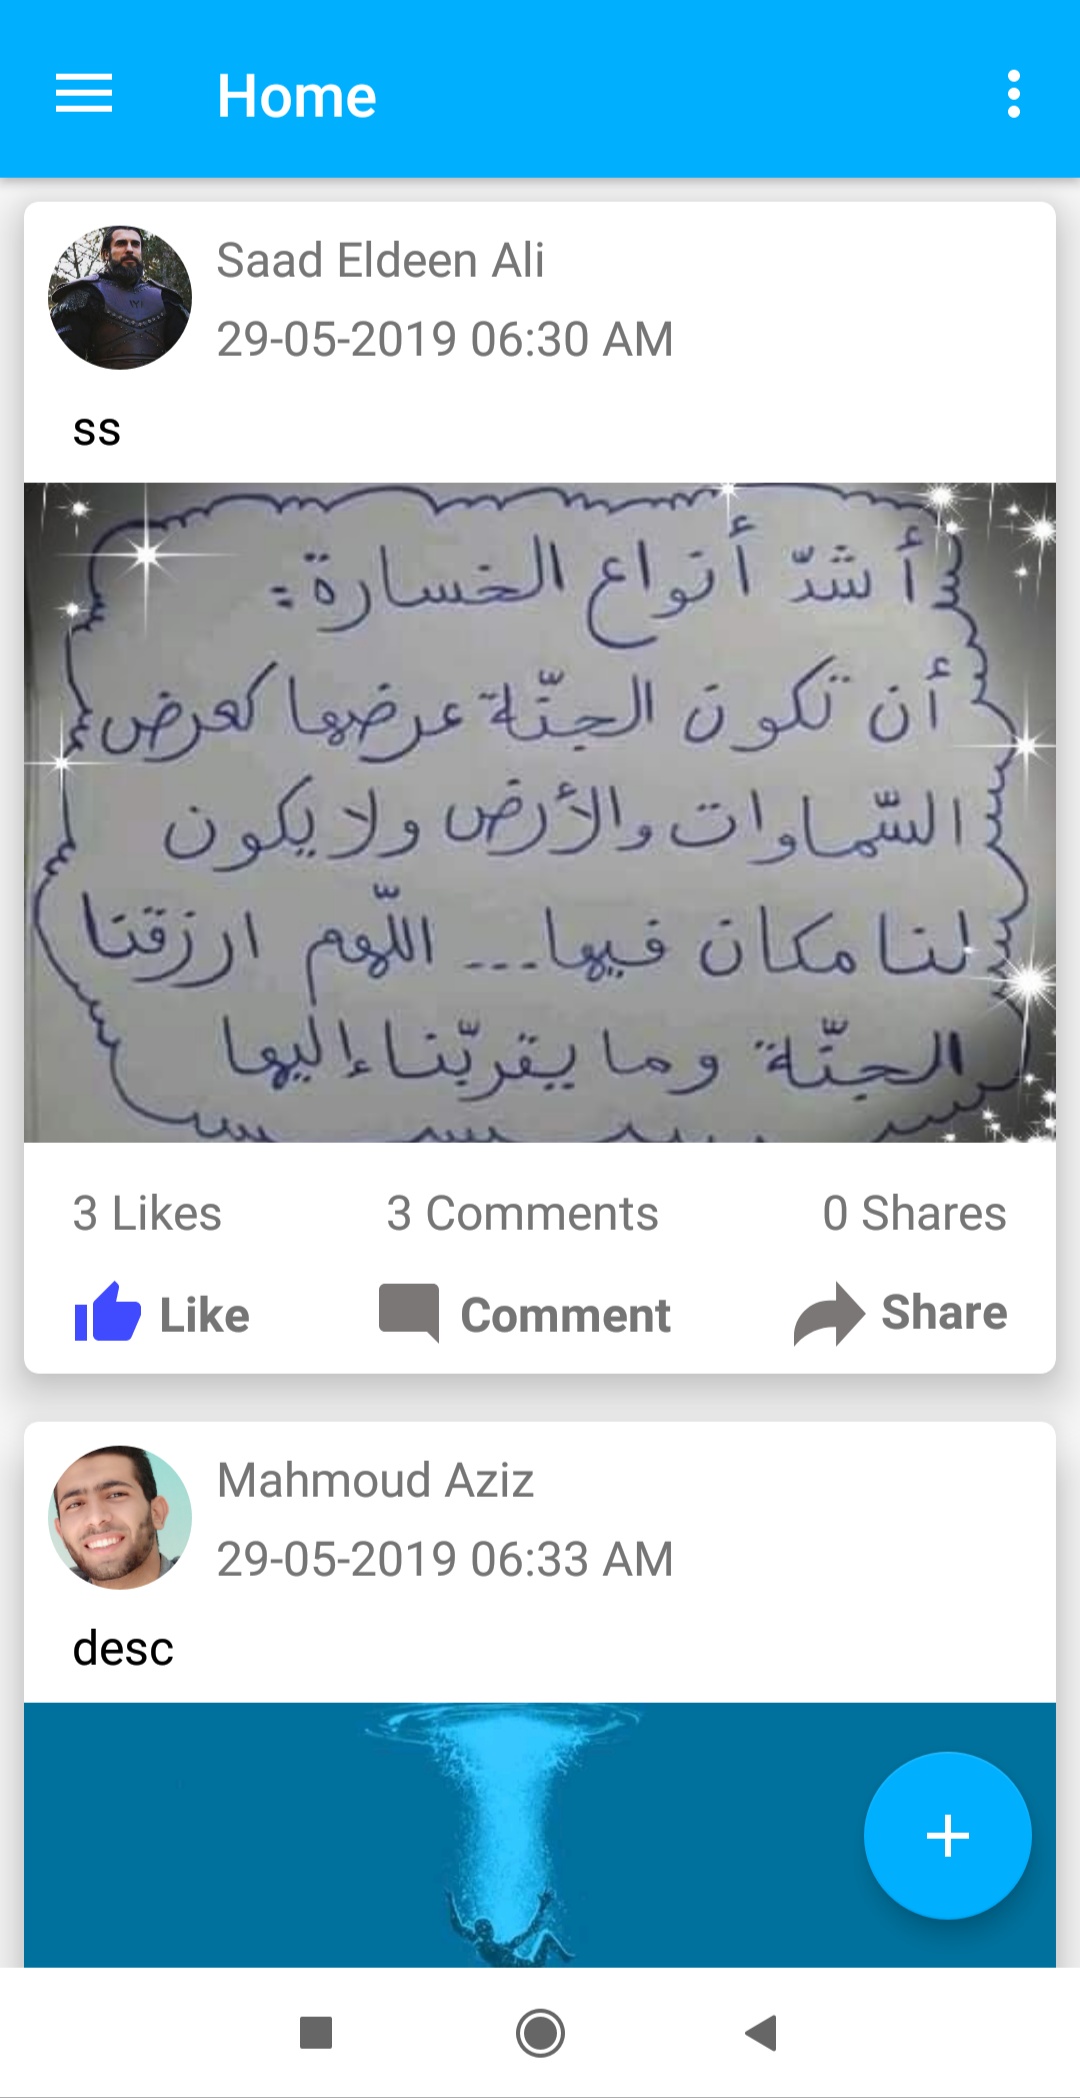 Home
Saad Eldeen Ali
29-05-2019 06:30 AM
ss
أشدّ أنواع الخسارة:
أن تكون الجنّة عرضها كعرض
السّماوات والأرض ولا يكون
لنا مكان فيها... اللّهم ارزقنا
الجنّة وما يقربّنا إليها
3 Likes 3 Comments 0 Shares
Like Comment Share
Mahmoud Aziz
29-05-2019 06:33 AM
desc